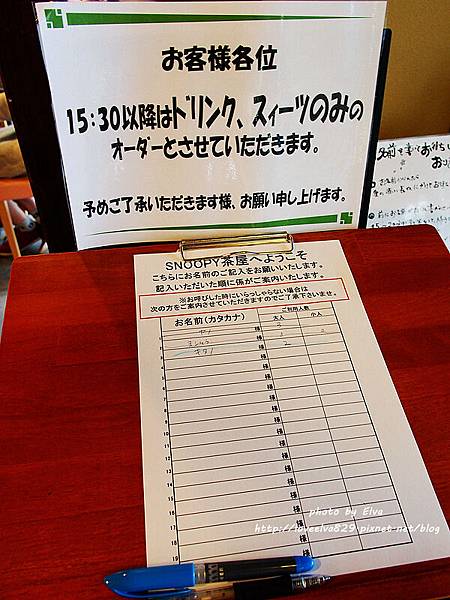 お客様各位
15:30以降はドリンク、スィーツのみの
オーダーとさせていただきます。
予めご了承いただきます様、お願い申し上げます。
SNOOPY茶屋へようこそ
こちらにお名前のご記入をお願いいたします。
記入いただいた順に係がご案内いたします。
※お呼びした時にいらっしゃらない場合は
次の方をご案内させていただきますのでご了承下さいませ。
お名前(カタカナ)
ご利用人数
大人 小人
様
様 2
様
様
様
様
様
様
様
様
様
様
様
様
様
16
17
18
19
photo by Elva
http://loveelva829.pixnet.net/blog